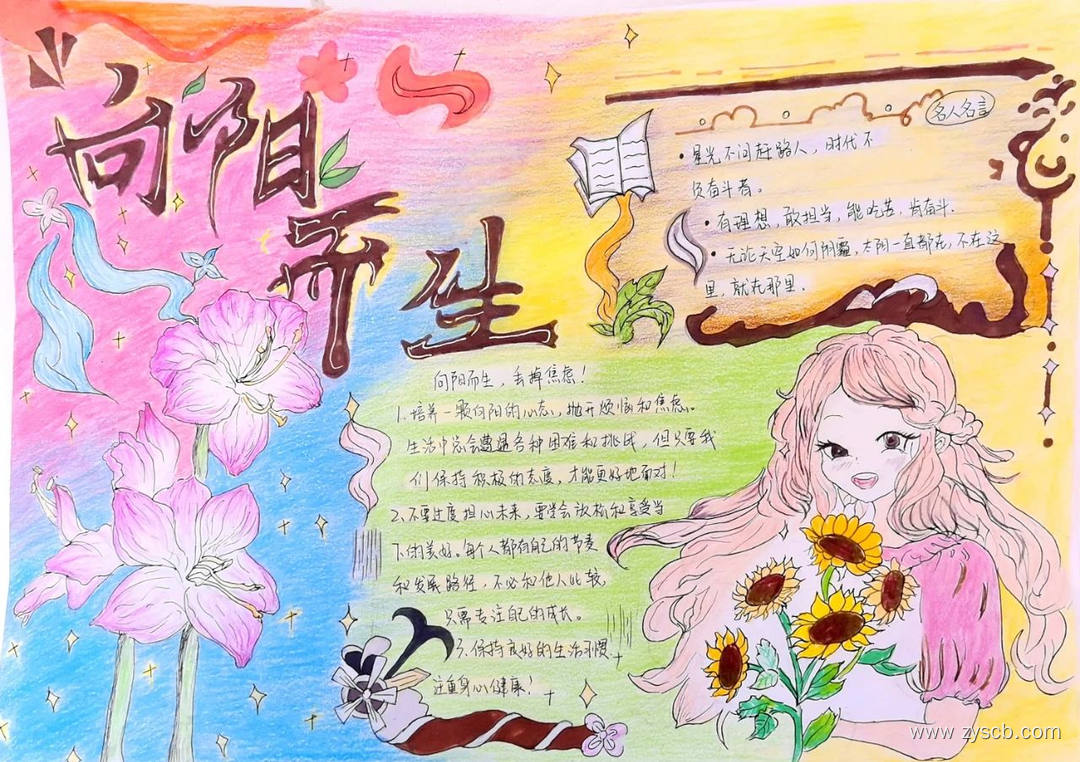 向阳
而生
名人名言
•星光不问赶路人，时代不
负奋斗者。
•有理想，敢担当，能吃苦，肯奋斗.
•无论天空如何阴霾，太阳一直都在，不在这
里，就在那里.
向阳而生，丢掉焦虑！
1.培养一颗向阳的心态，抛开烦恼和焦虑。
生活中总会遭遇各种困难和挑战，但只要我
们保持积极的态度，才能更好地面对！
2.不要过度担心未来，要学会放松和享受当
下的美好。每个人都有自己的节奏
和发展路径，不必和他人比较，
只需专注自己的成长。
3.保持良好的生活习惯，
注重身心健康！
www.zyscb.com